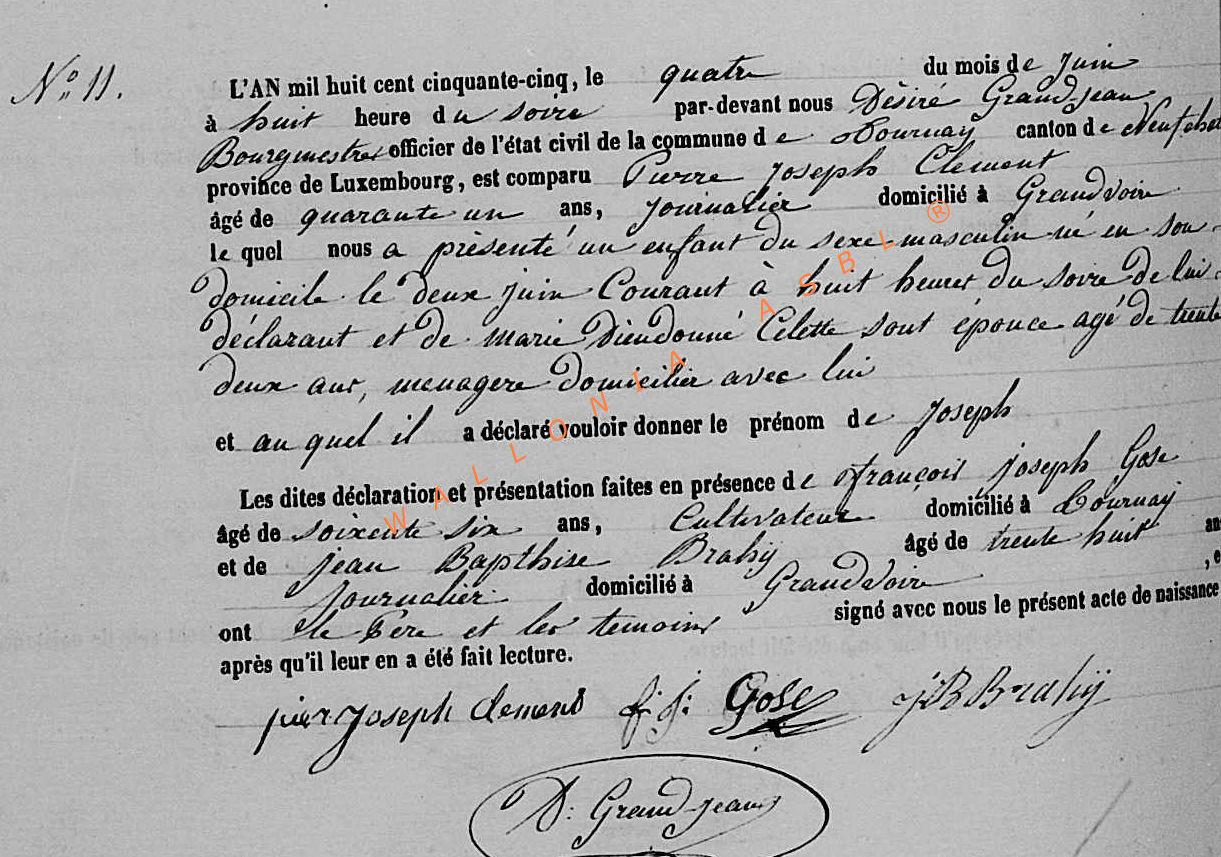 N° 11.
L'AN mil huit cent cinquante-cinq, le quatre du mois de juin
à huit heure du soire par-devant nous Désiré Grandjean
Bourgmestre officier de l'état civil de la commune de Tournay canton de Neufchat
province de Luxembourg, est comparu Pierre Joseph Clement
âgé de quarante un ans, journalier domicilié à Grandvoir
le quel nous a présenté un enfant du sexe masculin né en son
domicile le deux juin Courant à huit heures du soire de lui
déclarant et de marie Dieudonné Colette sont épouce agé de trente
deux ans, menagere domicilier avec lui
et au quel il a déclaré vouloir donner le prénom de joseph
Les dites déclaration et présentation faites en présence de françois joseph Gose
âgé de soixente six ans, Cultivateur domicilié à Tournay
et de jean Bapthise Brahy âgé de trente huit an
journalier domicilié à Grandvoir , e
ont le Père et les temoins signé avec nous le présent acte de naissance
après qu'il leur en a été fait lecture.
pier joseph clement f. j. Gose J B Brahÿ
D. Grandjean
WALLONIA ASBL ®